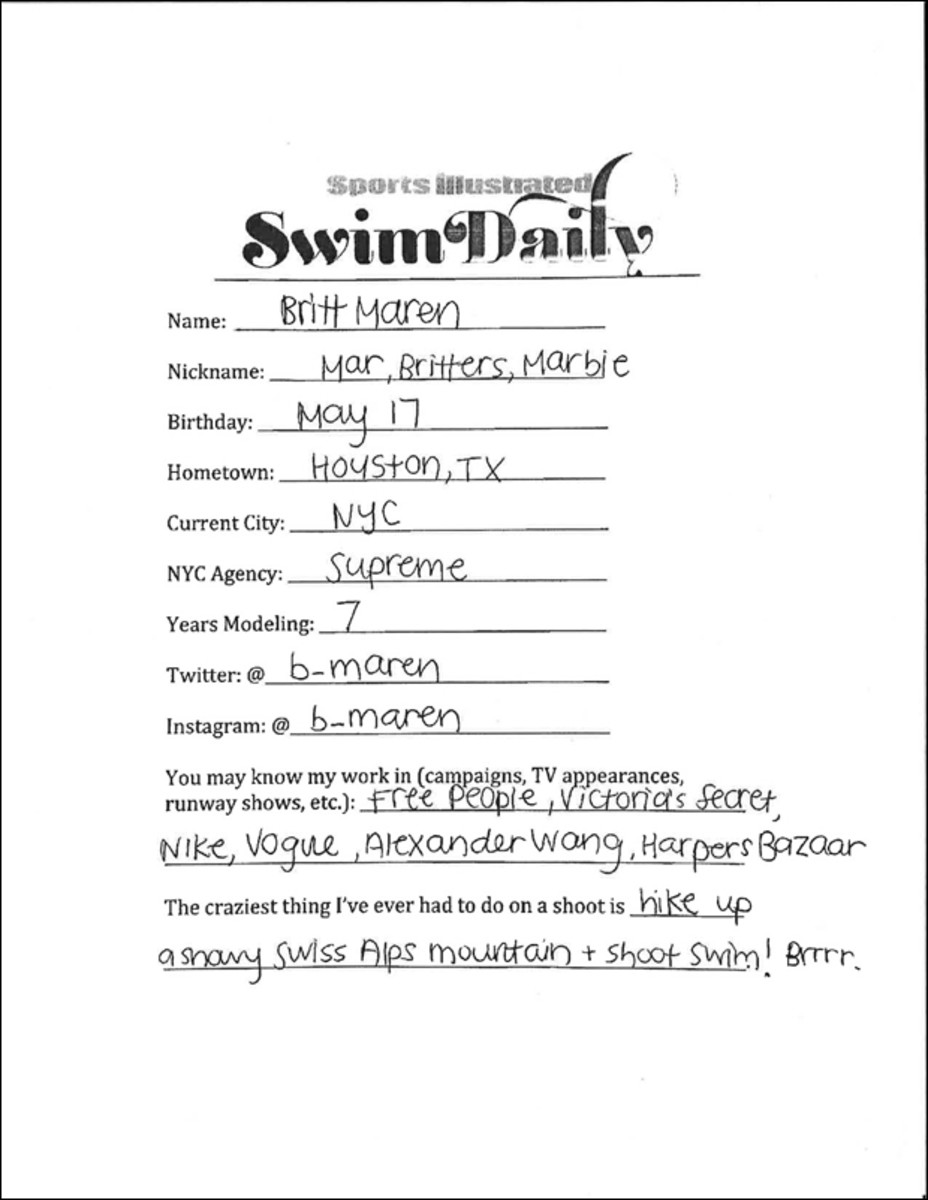 Sports Illustrated
Swim Daily
Name: Britt Maren
Nickname: Mar, Britters, Marbie
Birthday: May 17
Hometown: Houston, TX
Current City: NYC
NYC Agency: Supreme
Years Modeling: 7
Twitter: @ b-maren
Instagram: @ b-maren
You may know my work in (campaigns, TV appearances,
runway shows, etc.): Free People, Victoria's Secret,
Nike, Vogue, Alexander Wang, Harpers Bazaar
The craziest thing I've ever had to do on a shoot is hike up
a snowy Swiss Alps mountain + shoot swim! Brrrr.